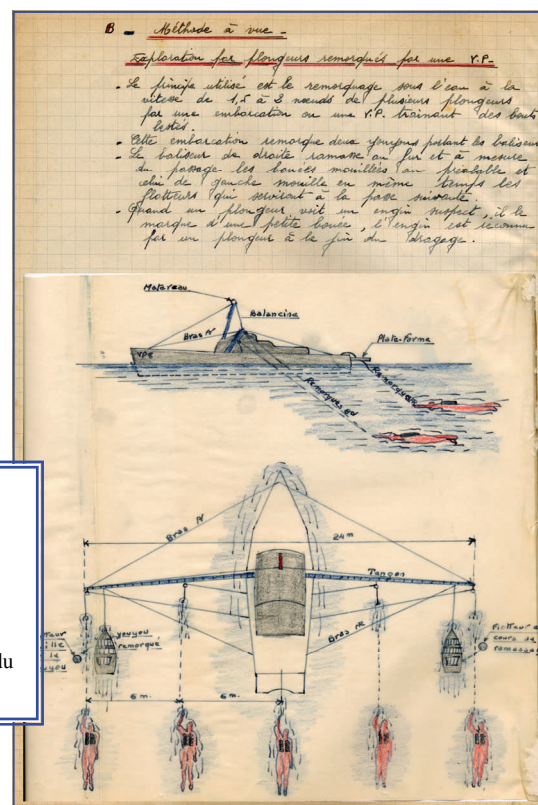 B - Méthode à vue -
Exploration par plongeurs remorqués par une V.P-
- Le principe utilisé est le remorquage sous l'eau à la
vitesse de 1,5 à 2 nœuds de plusieurs plongeurs
par une embarcation ou une V.P. traînant des bouts
lestés.
- Cette embarcation remorque deux youyous portant les baliseurs
- Le baliseur de droite ramasse au fur et à mesure
du passage les bouées mouillées au préalable et
celui de gauche mouille en même temps les
flotteurs qui serviront à la passe suivante.
- Quand un plongeur voit un engin suspect, il le
marque d'une petite bouée, l'engin est reconnu
par un plongeur à la fin du dragage.
Matereau
Balancine
Bras AV
Plate-Forme
VP8
Remorqueur
Remorques
Bras AV
24 m
Tangon
youyou
remorqué
Bras AR
Flotteur
cours de
ramassage
6 m.
6 m.
du